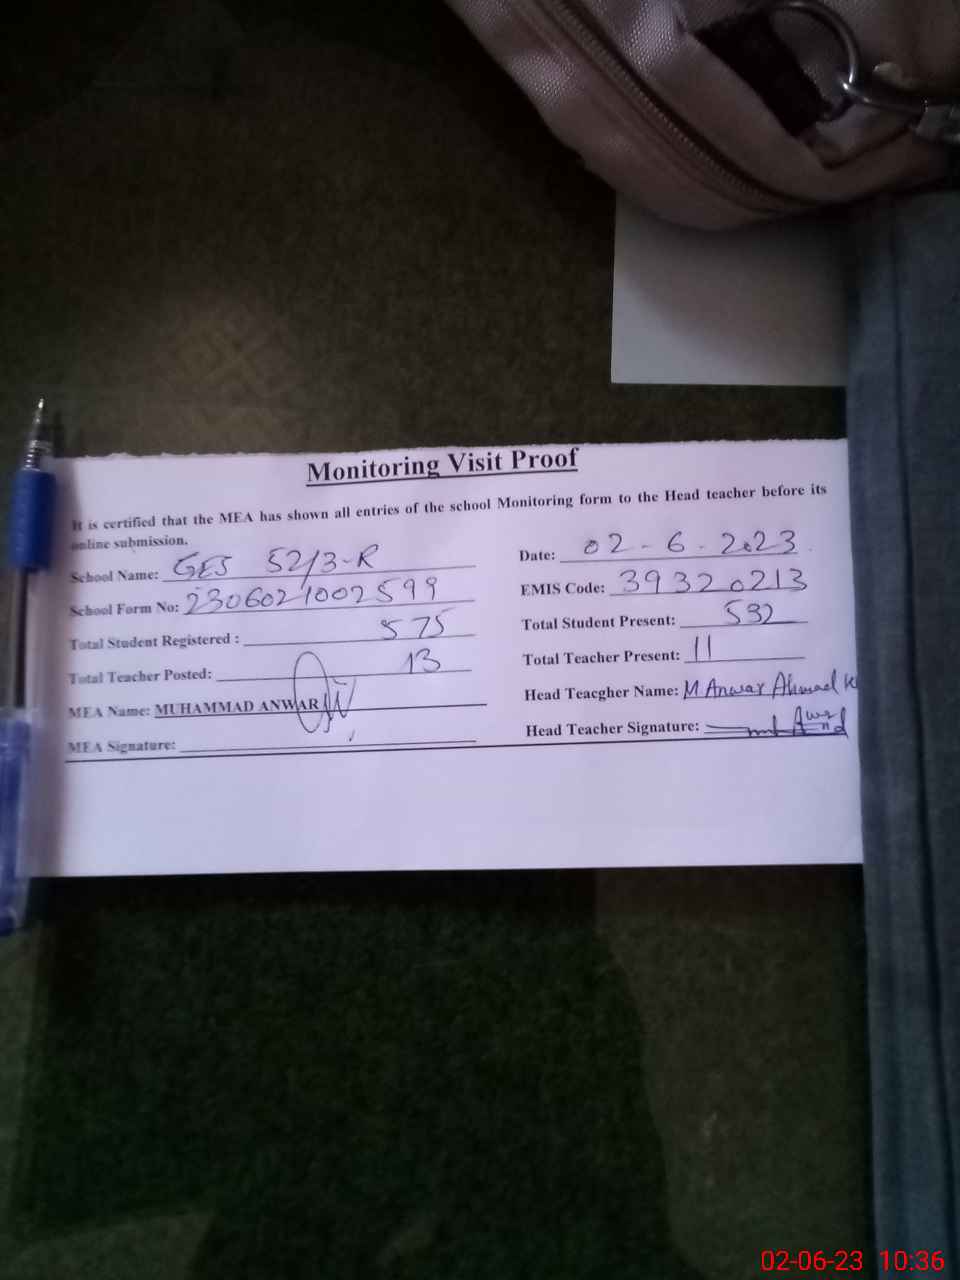 Monitoring Visit Proof
It is certified that the MEA has shown all entries of the school Monitoring form to the Head teacher before its
online submission.
School Name: GES 52/3-R
Date: 02-6-2023
School Form No: 2306021002599
EMIS Code: 39320213
Total Student Registered : 575
Total Student Present: 532
Total Teacher Posted: 13
Total Teacher Present: 11
MEA Name: MUHAMMAD ANWAR
Head Teacgher Name: M Anwar Ahmad
MEA Signature:
Head Teacher Signature:
02-06-23 10:36